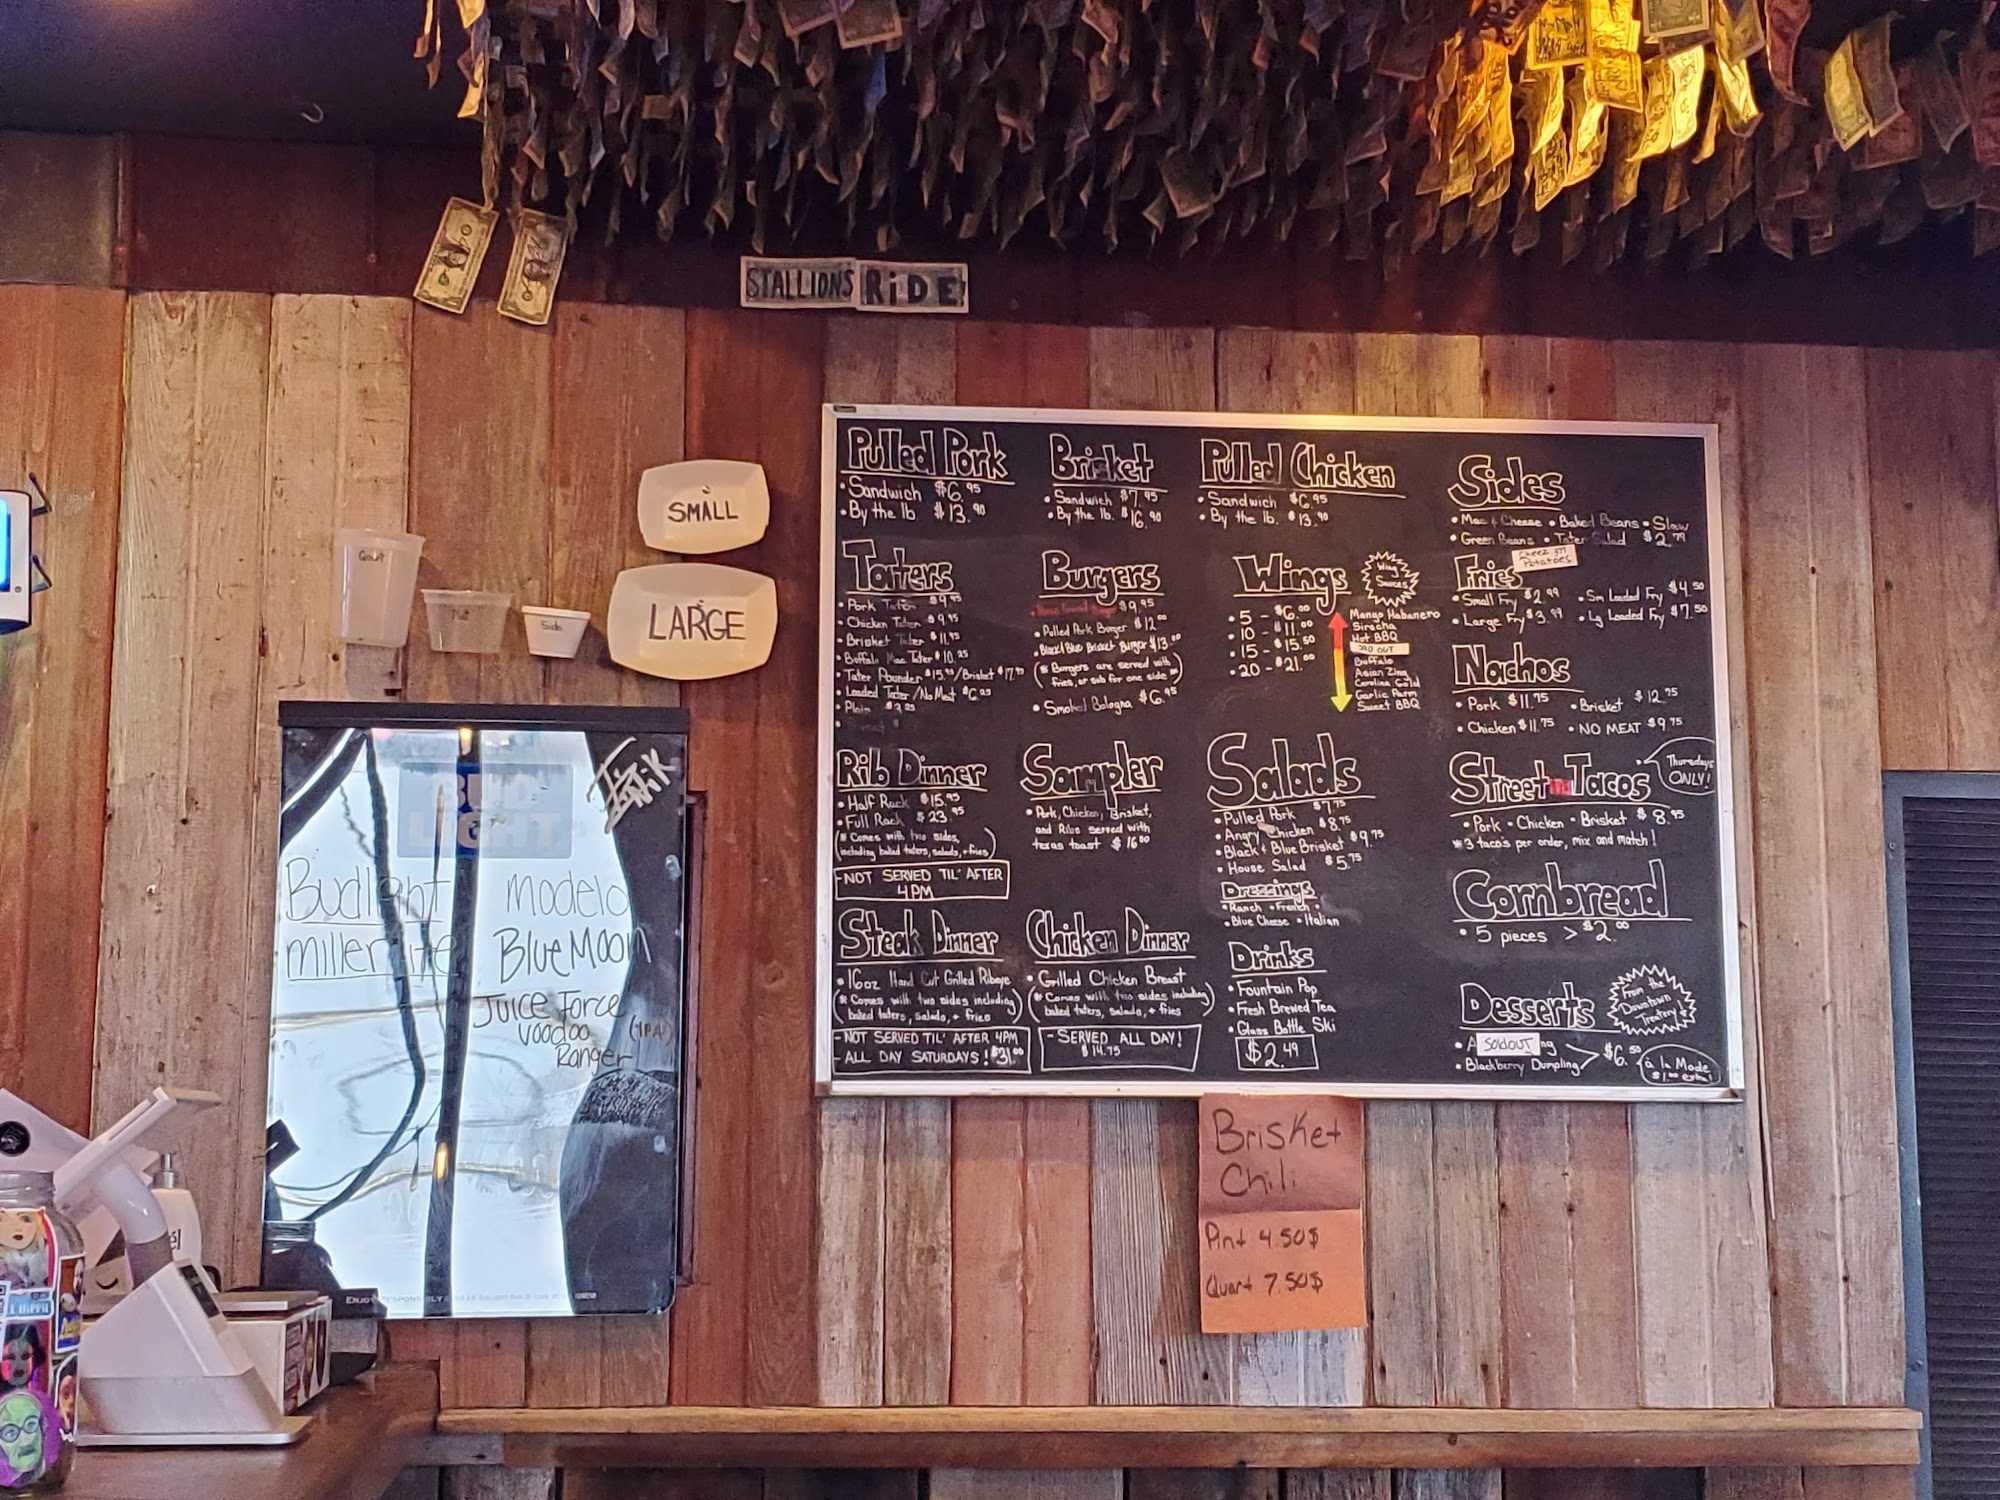 STALLIONS RiDE!
SMALL
LARGE
Quart
Side
BUD
LIGHT
Budlight
miller lite
modelo
Blue Moon
Juice Force
Voodoo
Ranger
(IPA)
Pulled Pork
• Sandwich $6.95
• By the lb. $13.90
Brisket
• Sandwich $7.95
• By the lb. $16.90
Pulled Chicken
• Sandwich $6.95
• By the lb. $13.90
Sides
• Mac & Cheese • Baked Beans • Slaw
• Green Beans • Tater Salad $2.79
Cheezy
Potatoes
Taters
• Pork Tater $9.95
• Chicken Tater $9.95
• Brisket Tater $11.95
• Buffalo Mac Tater $10.25
• Tater Pounder $15.95/Brisket $17.95
• Loaded Tater/No Meat $6.25
• Plain $3.25
Burgers
$9.95
• Pulled Pork Burger $12.00
• Black & Blue Brisket Burger $13.00
(* Burgers are served with
fries, or sub for one side *)
• Smoked Bologna $6.95
Wings
• 5 - $6.00
• 10 - $11.00
• 15 - $15.50
• 20 - $21.00
Wing
Sauces
Mango Habanero
Siracha
Hot BBQ
SOLD OUT
Buffalo
Asian Zing
Carolina Gold
Garlic Parm
Sweet BBQ
Fries
• Small Fry $2.99 • Sm Loaded Fry $4.50
• Large Fry $3.99 • Lg Loaded Fry $7.50
Nachos
• Pork $11.75 • Brisket $12.75
• Chicken $11.75 • NO MEAT $9.75
Rib Dinner
• Half Rack $15.95
• Full Rack $23.95
(* Comes with two sides,
including baked taters, salads, + fries)
-NOT SERVED TIL' AFTER
4PM
Sampler
• Pork, Chicken, Brisket,
and Ribs served with
texas toast $16.00
Salads
• Pulled Pork $7.75
• Angry Chicken $8.75
• Black & Blue Brisket $9.75
• House Salad $5.75
Dressings
• Ranch • French •
• Blue Cheese • Italian
Street Tacos
Thursdays
ONLY!
• Pork • Chicken • Brisket $8.95
*3 taco's per order, mix and match!
Cornbread
• 5 pieces > $2.00
Steak Dinner
• 16oz Hand Cut Grilled Ribeye
(* Comes with two sides including
baked taters, salads, + fries)
-NOT SERVED TIL' AFTER 4PM
-ALL DAY SATURDAYS! $31.00
Chicken Dinner
• Grilled Chicken Breast
(* Comes with two sides including
baked taters, salads, + fries)
-SERVED ALL DAY!
$14.75
Drinks
• Fountain Pop
• Fresh Brewed Tea
• Glass Bottle Ski
$2.49
Desserts
From the
Downtown
Treatery
• A SOLD OUT ng
• Blackberry Dumpling $6.50
á la Mode
$1.00 extra!
Brisket
Chili
Pint 4.50$
Quart 7.50$